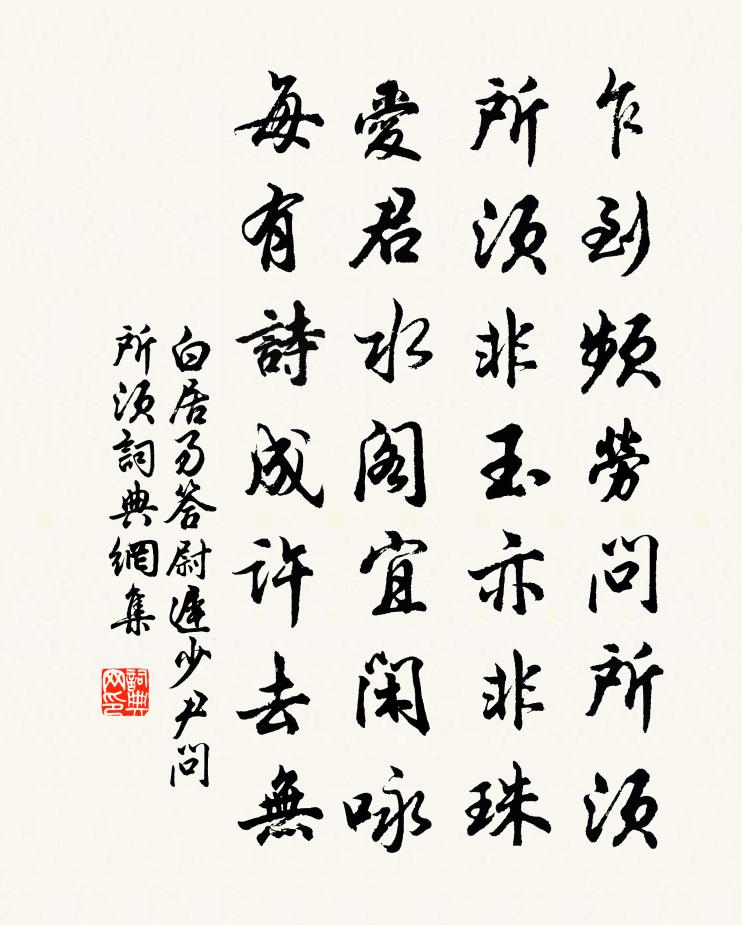 乍到頻勞問所須
所須非玉亦非珠
愛君水閣宜閑咏
每有詩成許去無
白居易答尉遲少尹問
所須詞典網集
詞典
网印